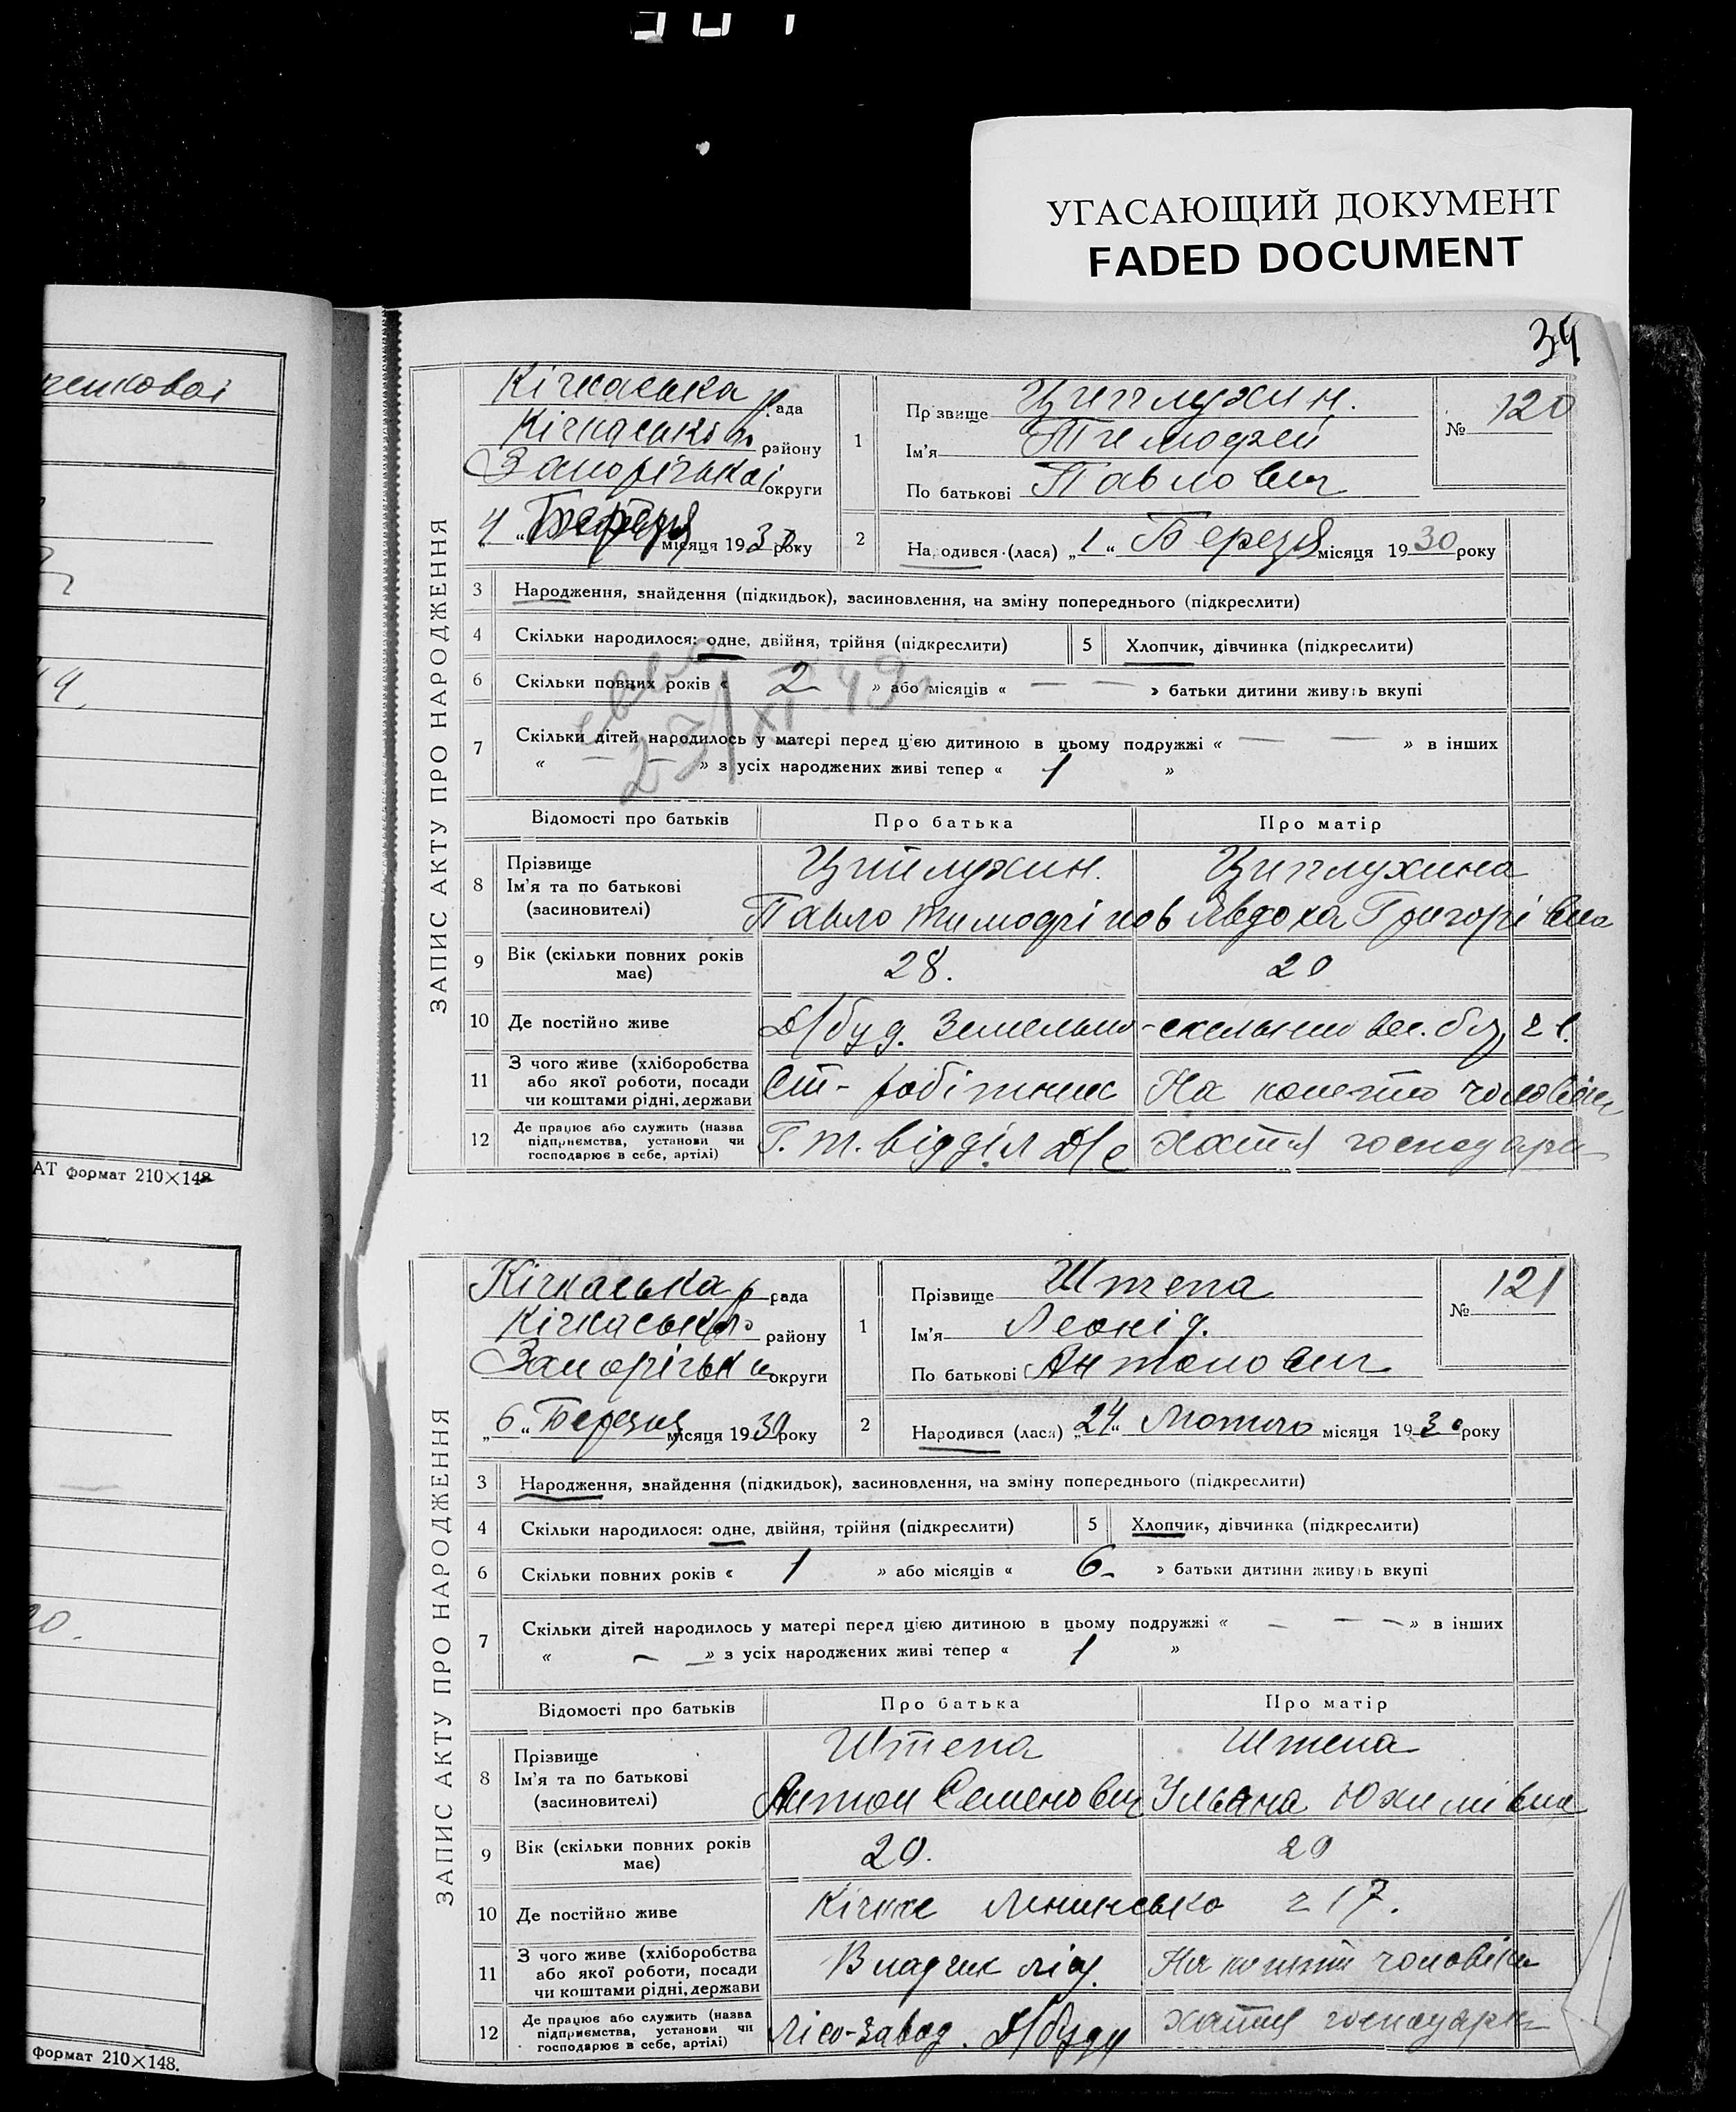 УГАСАЮЩИЙ ДОКУМЕНТ
FADED DOCUMENT
34
АТ формат 210×148
формат 210×148.
ЗАПИС АКТУ ПРО НАРОДЖЕННЯ
Кічкаська рада
Кічкаського району
Запорізької округи
4 „ Березня місяця 1930 року
1
Прізвище Циплухин.
Ім'я Тимофей
По батькові Павлович
№ 120
2
Народився (лася) „1“ Березня місяця 1930 року
3 Народження, знайдення (підкидьок), засиновлення, на зміну попереднього (підкреслити)
4 Скільки народилося: одне, двійня, трійня (підкреслити) 5 Хлопчик, дівчинка (підкреслити)
6 Скільки повних років « 2 » або місяців « — — » батьки дитини живуть вкупі
23/XI 49
7 Скільки дітей народилось у матері перед цією дитиною в цьому подружжі « — — » в інших
« — — » з усіх народжених живі тепер « 1 »
Відомості про батьків Про батька Про матір
8 Прізвище Ім'я та по батькові (засиновителі)
Циплухин. Циплухина
Павло Тимофіїов Явдоха Григорівна
9 Вік (скільки повних років має) 28. 20
10 Де постійно живе Д/буд. Земельно-скельний
11 З чого живе (хліборобства або якої роботи, посади чи коштами рідні, держави Ст- робітник На кошти чоловіка
12 Де працює або служить (назва підприємства, установи чи господарює в себе, артілі) Г. т. відділ Д/б хатня господарка
ЗАПИС АКТУ ПРО НАРОДЖЕННЯ
Кічкаська рада
Кічкаського району
Запорізької округи
„6“ Березня місяця 1930 року
1
Прізвище Штепа
Ім'я Леонід.
По батькові Антонович
№ 121
2
Народився (лася) „24“ Лютого місяця 1930 року
3 Народження, знайдення (підкидьок), засиновлення, на зміну попереднього (підкреслити)
4 Скільки народилося: одне, двійня, трійня (підкреслити) 5 Хлопчик, дівчинка (підкреслити)
6 Скільки повних років « 1 » або місяців « 6- » батьки дитини живуть вкупі
7 Скільки дітей народилось у матері перед цією дитиною в цьому подружжі « — — — » в інших
« — — » з усіх народжених живі тепер « 1 »
Відомості про батьків Про батька Про матір
8 Прізвище Ім'я та по батькові (засиновителі)
Штепа Штепа
Антон Семенович Ульяна Юхимівна
9 Вік (скільки повних років має) 20. 20
10 Де постійно живе Кічкас Ленинська 17.
11 З чого живе (хліборобства або якої роботи, посади чи коштами рідні, держави На кошти чоловіка
12 Де працює або служить (назва підприємства, установи чи господарює в себе, артілі) Лісо-завод. Д/буду хатня господарка